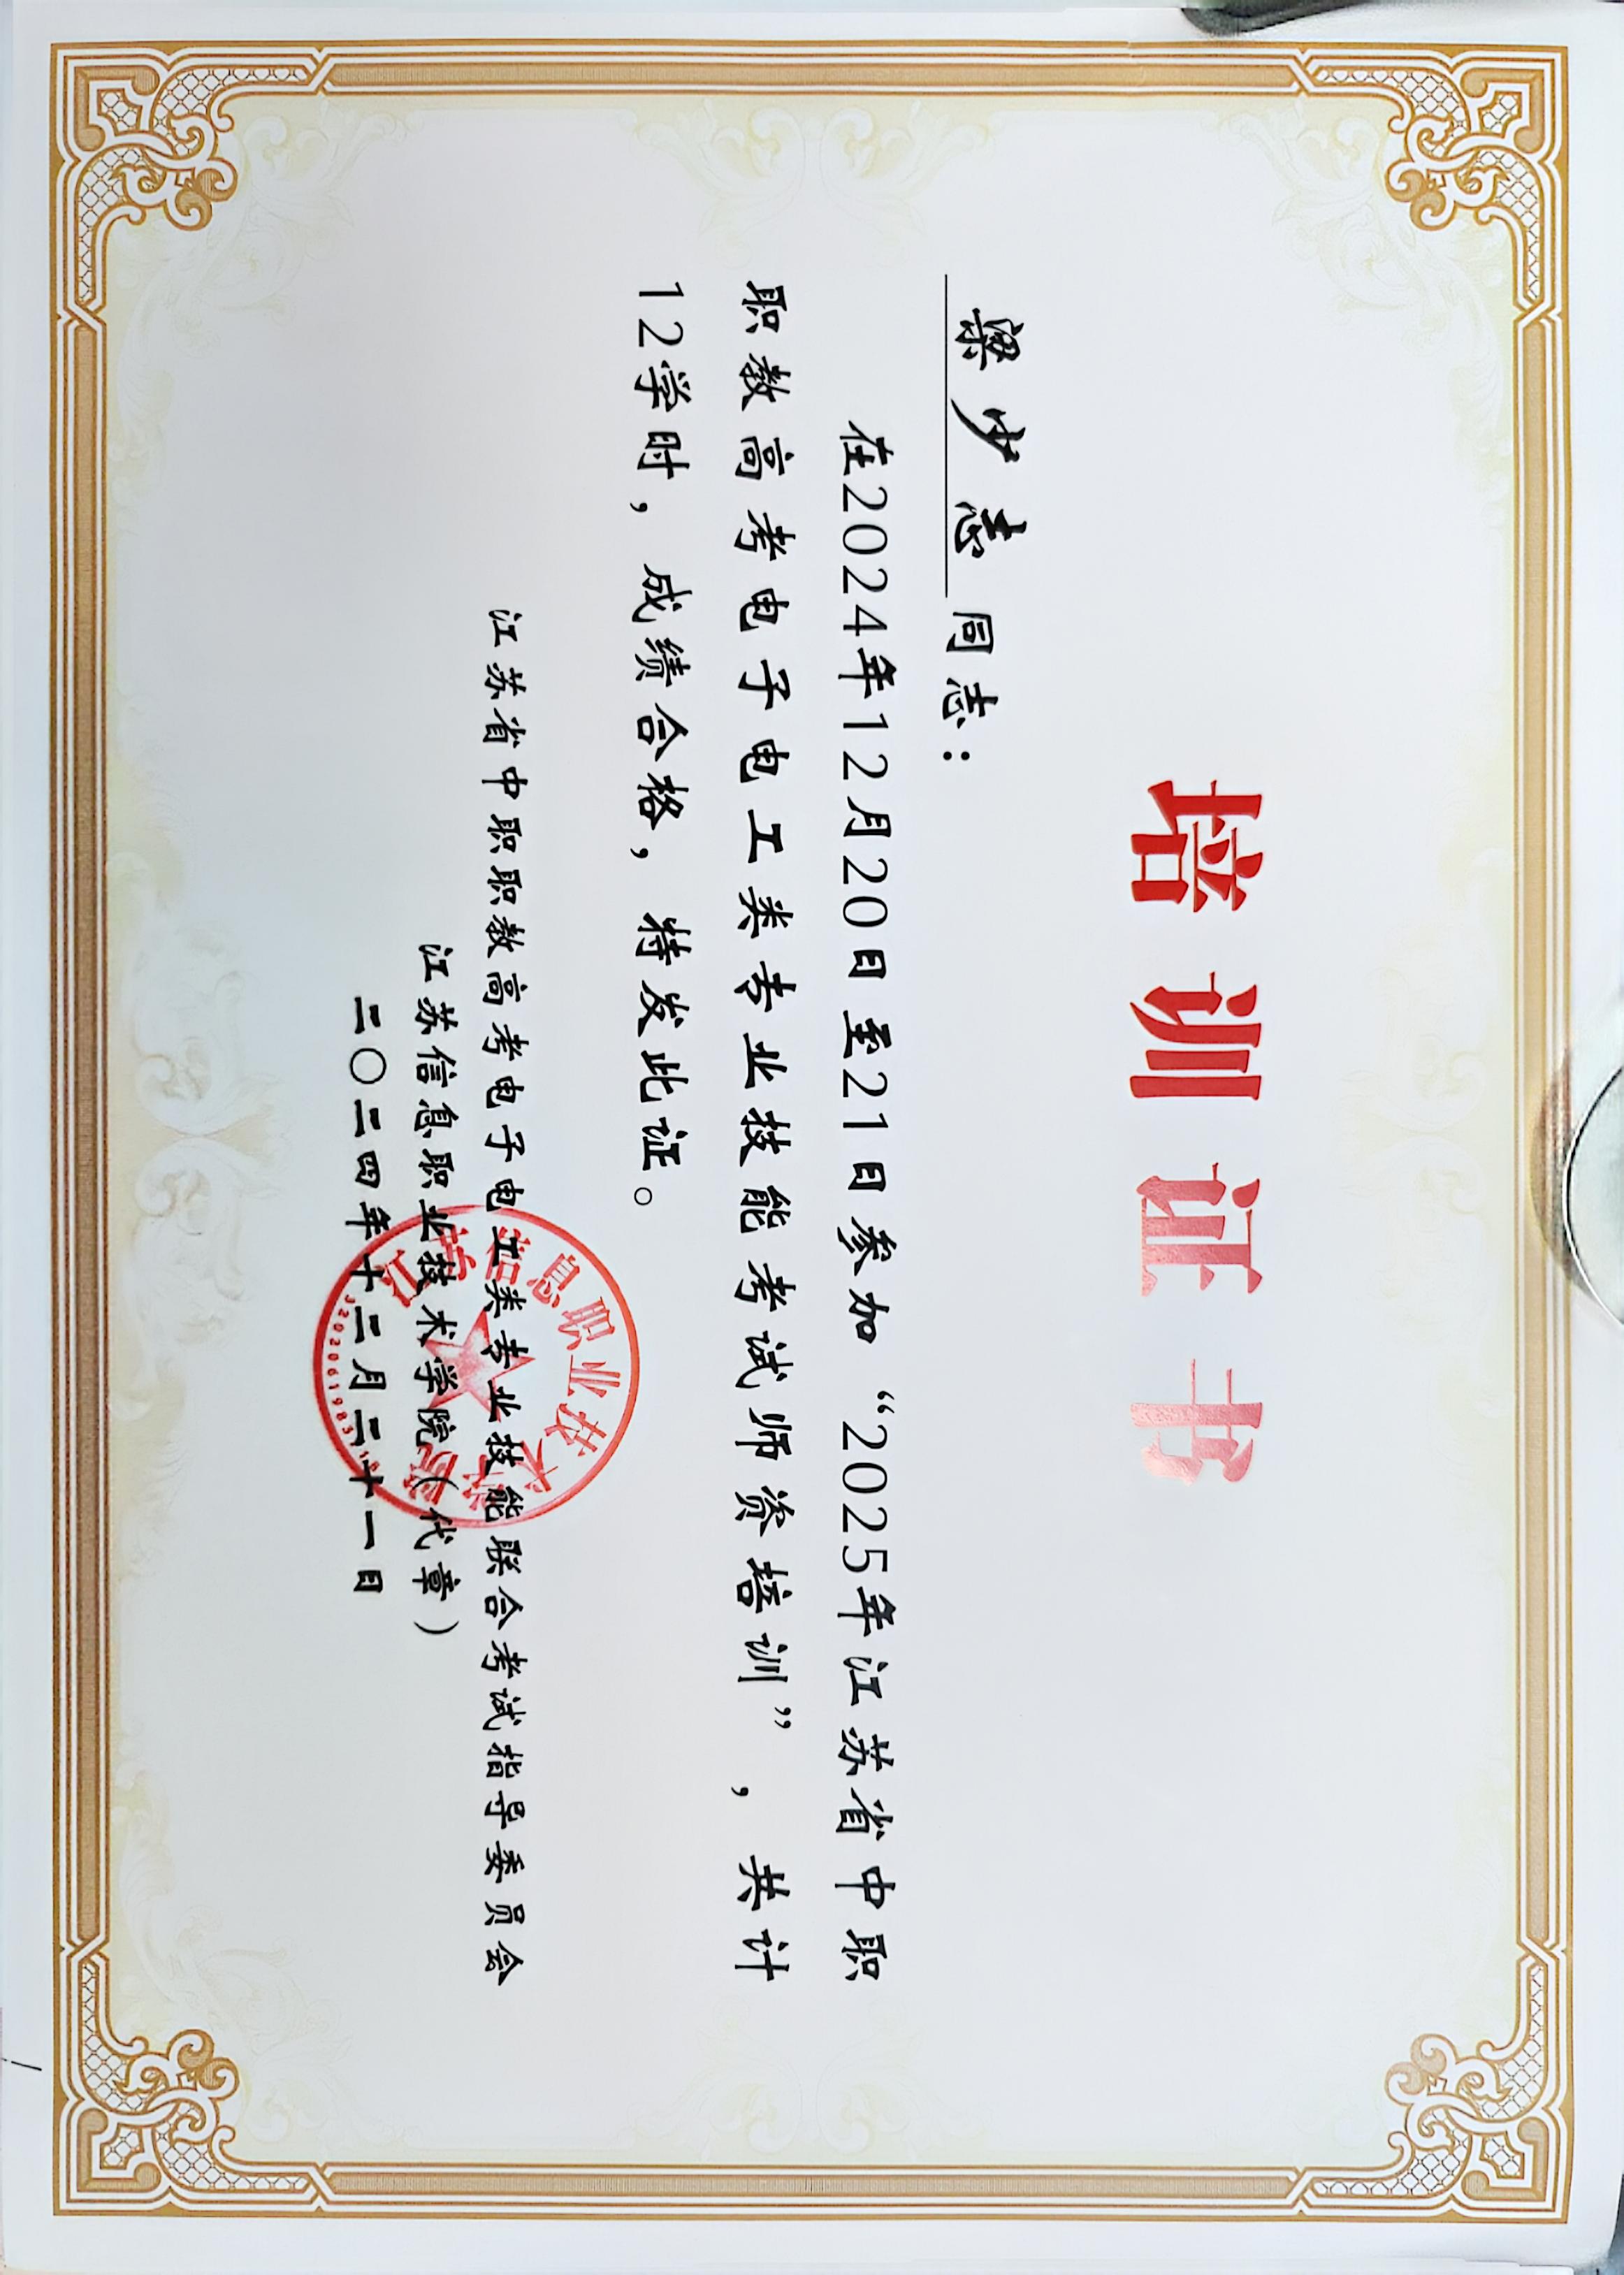 培训证书
梁少志同志：
在2024年12月20日至21日参加“2025年江苏省中职
职教高考电子电工类专业技能考试师资培训”，共计
12学时，成绩合格，特发此证。
江苏省中职职教高考电子电工类专业技能联合考试指导委员会
江苏信息职业技术学院（代章）
二〇二四年十二月二十一日
江苏信息职业技术学院